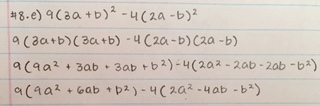 #8.e) 9(3a+b)² - 4(2a-b)²
9(3a+b)(3a+b) - 4(2a-b)(2a-b)
9(9a² + 3ab + 3ab + b²) - 4(2a² - 2ab - 2ab - b²)
9(9a² + 6ab + b²) - 4(2a² - 4ab - b²)